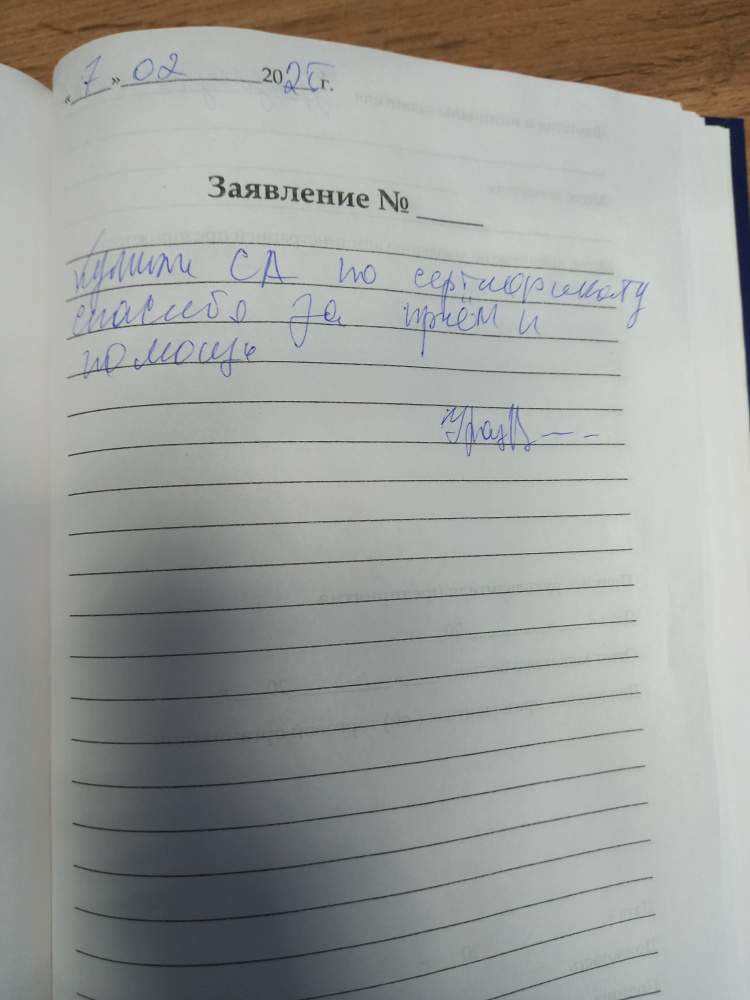 «7» 02 2025г.
Заявление №
купили СА по сертификату
спасибо за приём и
помощь